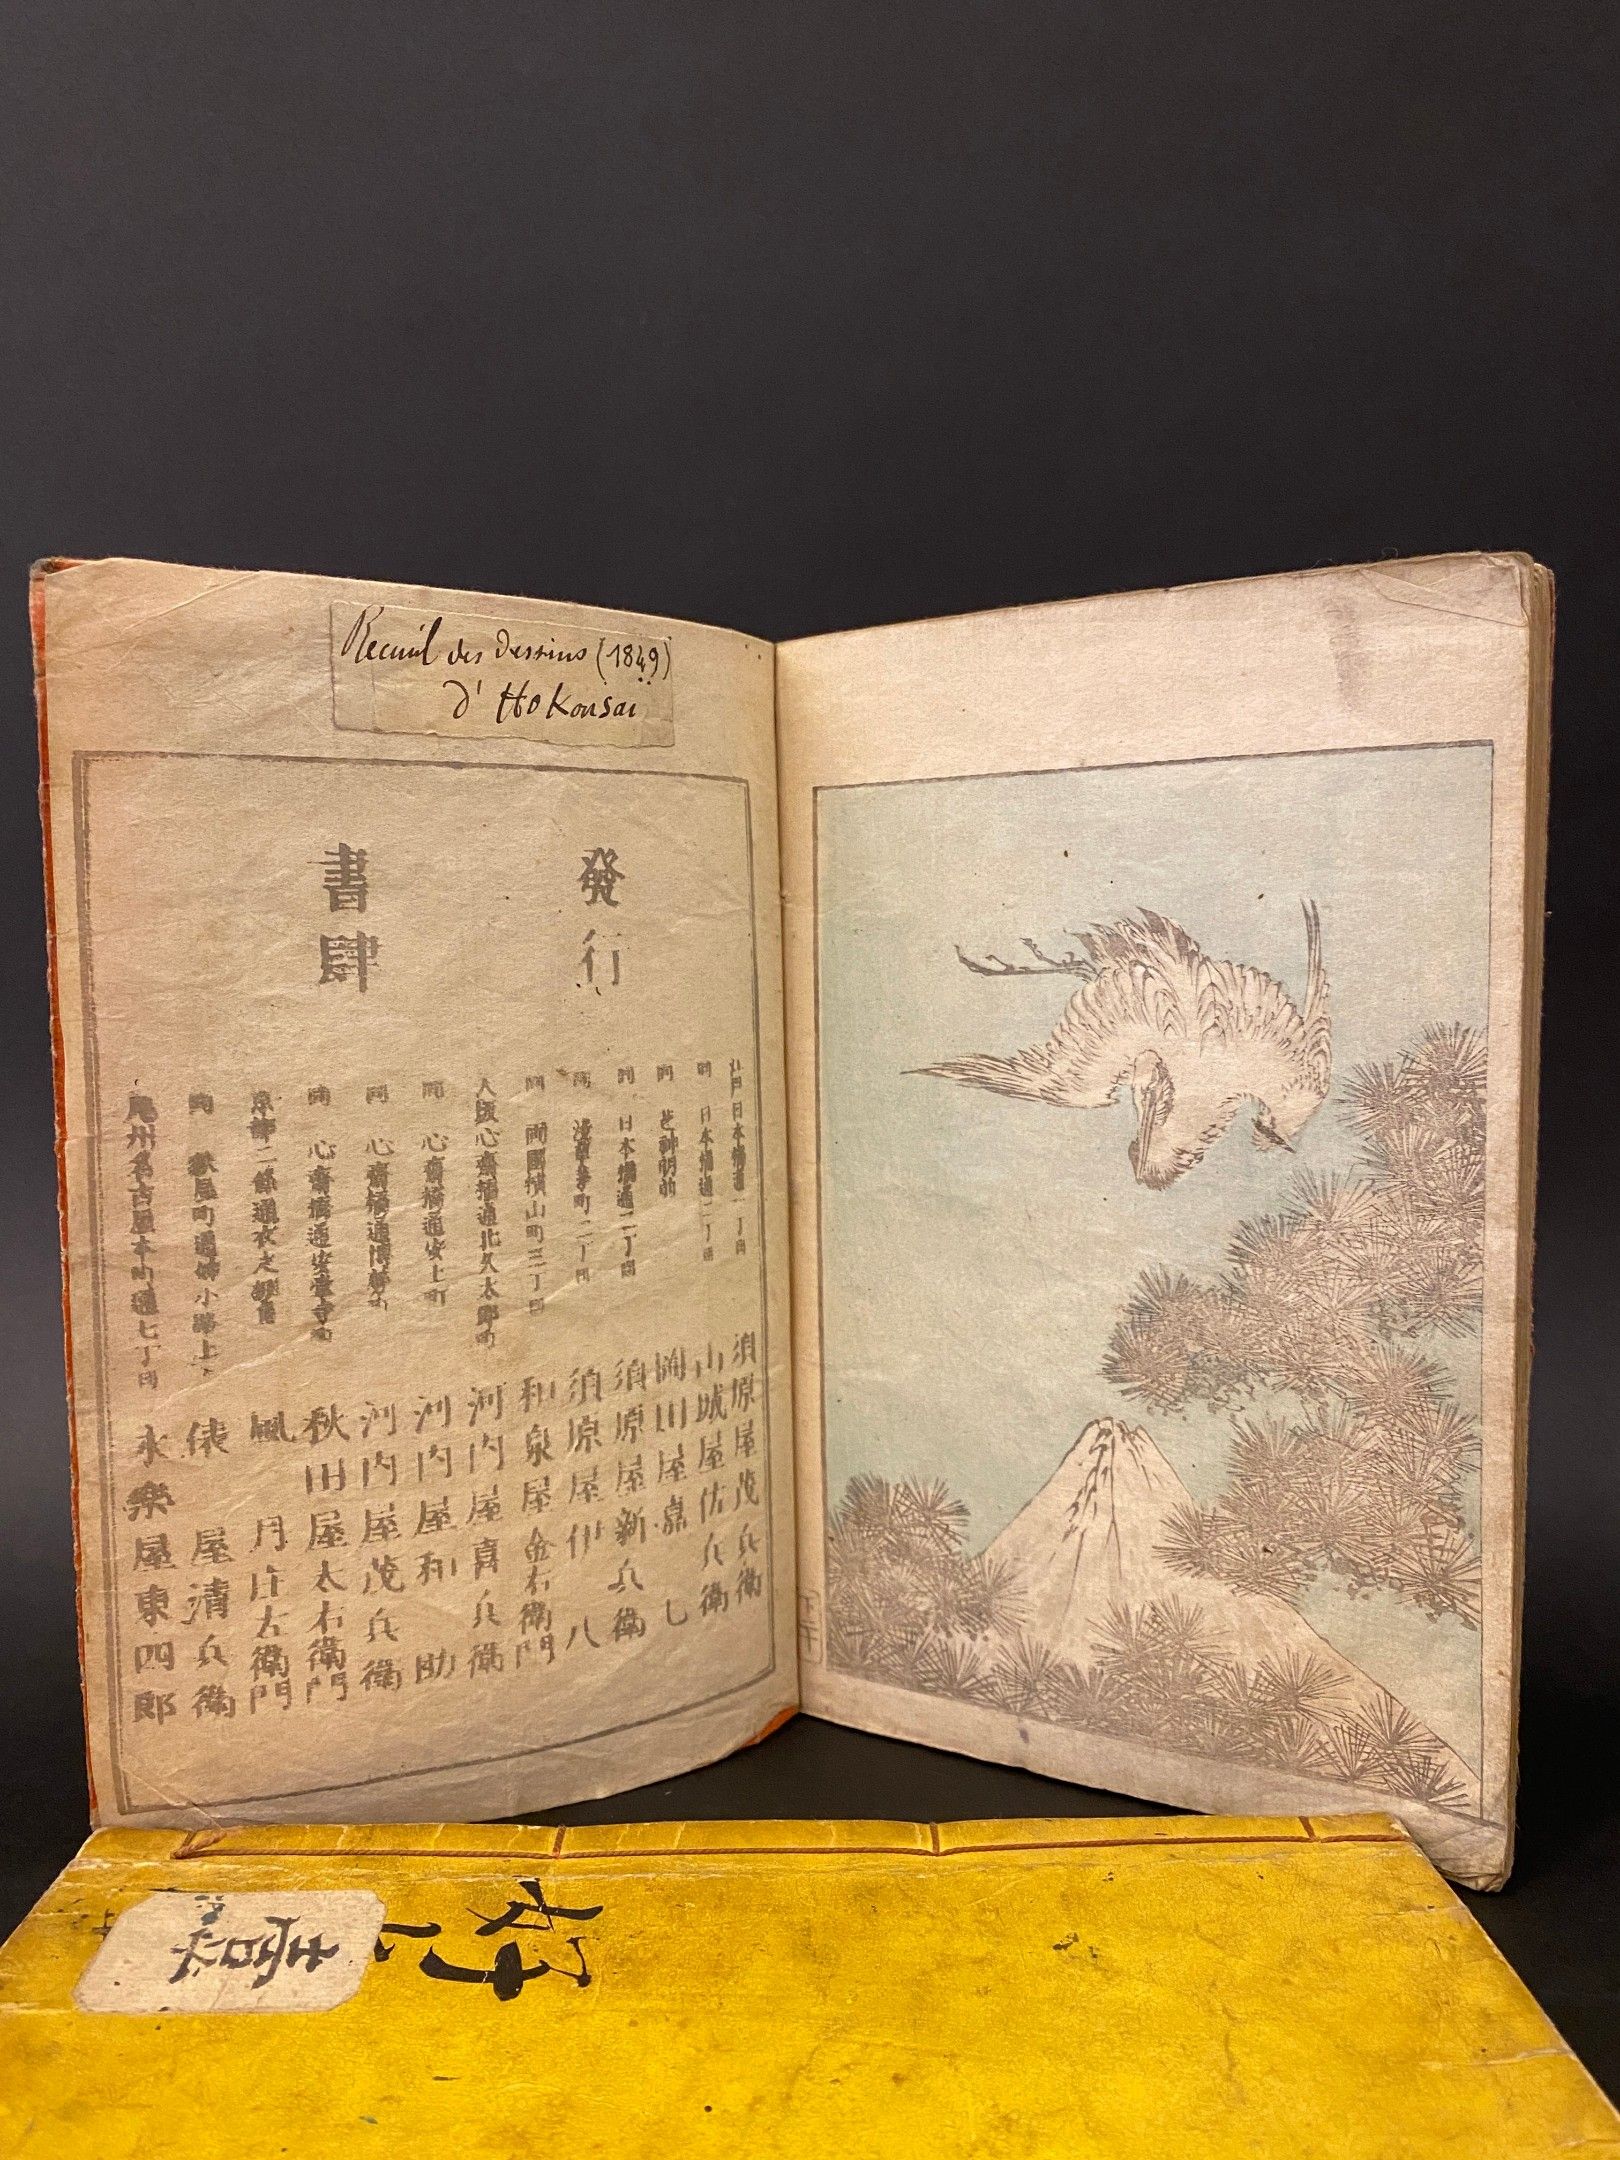 Recueil des Dessins (1849)
d'Hokousai
發行
書肆
江戸日本橋通一丁目 須原屋茂兵衛
同 日本橋通二丁目 山城屋佐兵衛
同 芝神明前 岡田屋嘉七
同 日本橋通二丁目 須原屋新兵衛
同 淺草茅町二丁目 須原屋伊八
同 両國横山町三丁目 和泉屋金右衛門
大阪心齋橋通北久太郎町 河内屋喜兵衛
同 心齋橋通安土町 河内屋和助
同 心齋橋通博労町 河内屋茂兵衛
同 心齋橋通安堂寺町 秋田屋太右衛門
京都二條通衣之棚角 風月庄左衛門
同 通 小路上 俵屋清兵衛
尾州名古屋本町通七丁目 永樂屋東四郎
好